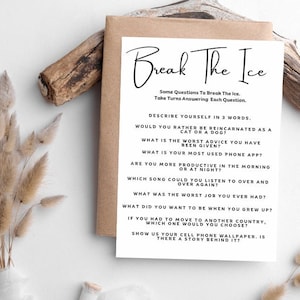 Break The Ice
Some Questions To Break The Ice.
Take Turns Answering Each Question.
DESCRIBE YOURSELF IN 3 WORDS.
WOULD YOU RATHER BE REINCARNATED AS A
CAT OR A DOG?
WHAT IS THE WORST ADVICE YOU HAVE
BEEN GIVEN?
WHAT IS YOUR MOST USED PHONE APP?
ARE YOU MORE PRODUCTIVE IN THE MORNING
OR AT NIGHT?
WHICH SONG COULD YOU LISTEN TO OVER AND
OVER AGAIN?
WHAT WAS THE WORST JOB YOU EVER HAD?
WHAT DID YOU WANT TO BE WHEN YOU GREW UP?
IF YOU HAD TO MOVE TO ANOTHER COUNTRY,
WHICH ONE WOULD YOU CHOOSE?
SHOW US YOUR CELL PHONE WALLPAPER. IS
THERE A STORY BEHIND IT?